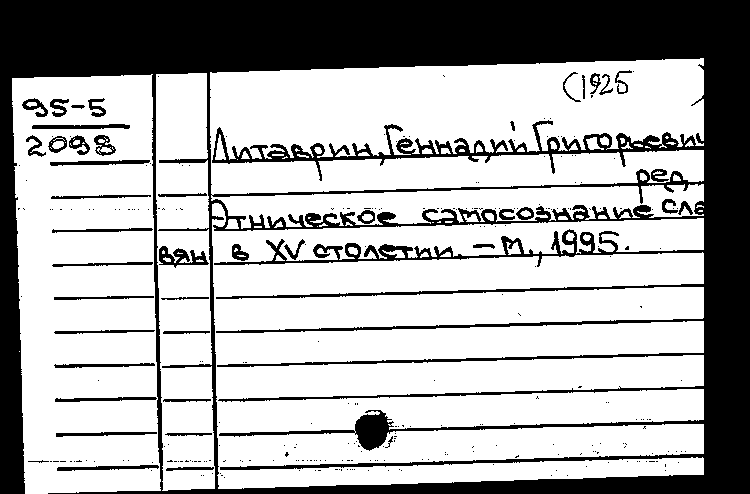 (1925 )
95-5
2098
Литаврин, Геннадий Григорьевич
ред.
Этническое самосознание сла
вян в XV столетии. - М., 1995.